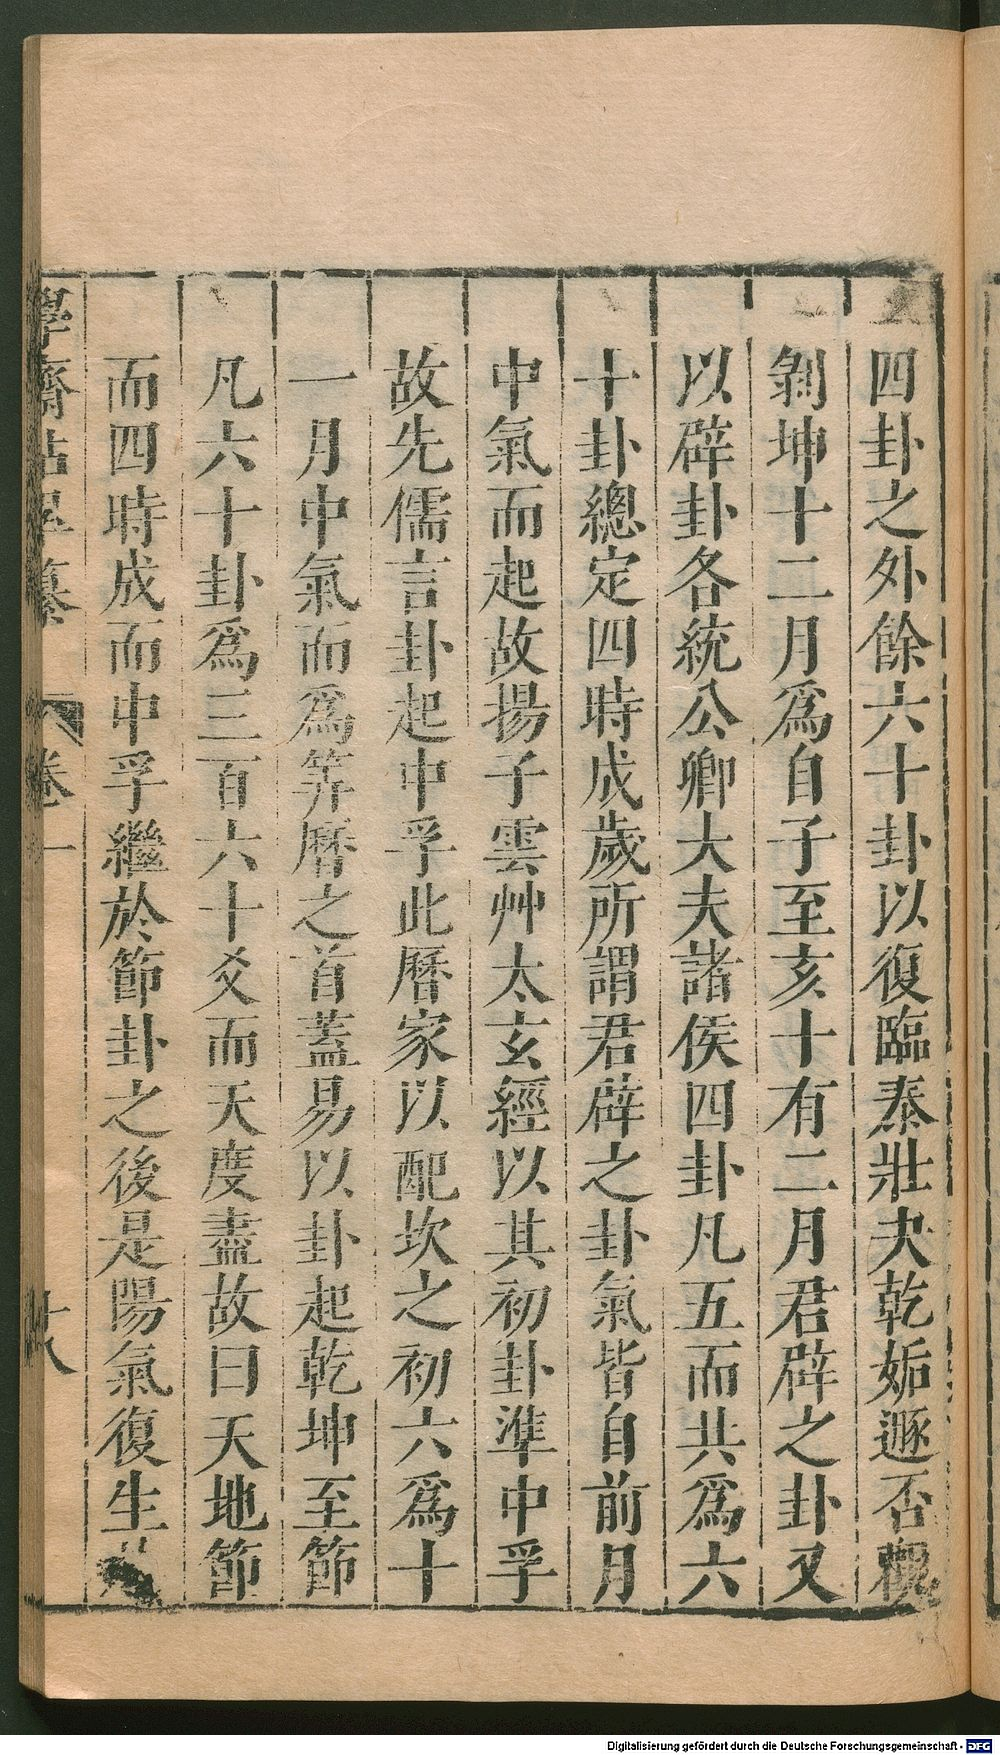 四卦之外餘六十卦以復臨泰壯夬乾姤遯否觀
剝坤十二月爲自子至亥十有二月君辟之卦又
以辟卦各統公卿大夫諸侯四卦凡五而共爲六
十卦總定四時成歲所謂君辟之卦氣皆自前月
中氣而起故揚子雲艸太玄經以其初卦準中孚
故先儒言卦起中孚此曆家以配坎之初六爲十
一月中氣而爲筭曆之首蓋易以卦起乾坤至節
凡六十卦爲三百六十爻而天度盡故曰天地節
而四時成而中孚繼於節卦之後是陽氣復生
學齋佔畢纂 卷一 十八
Digitalisierung gefördert durch die Deutsche Forschungsgemeinschaft - DFG